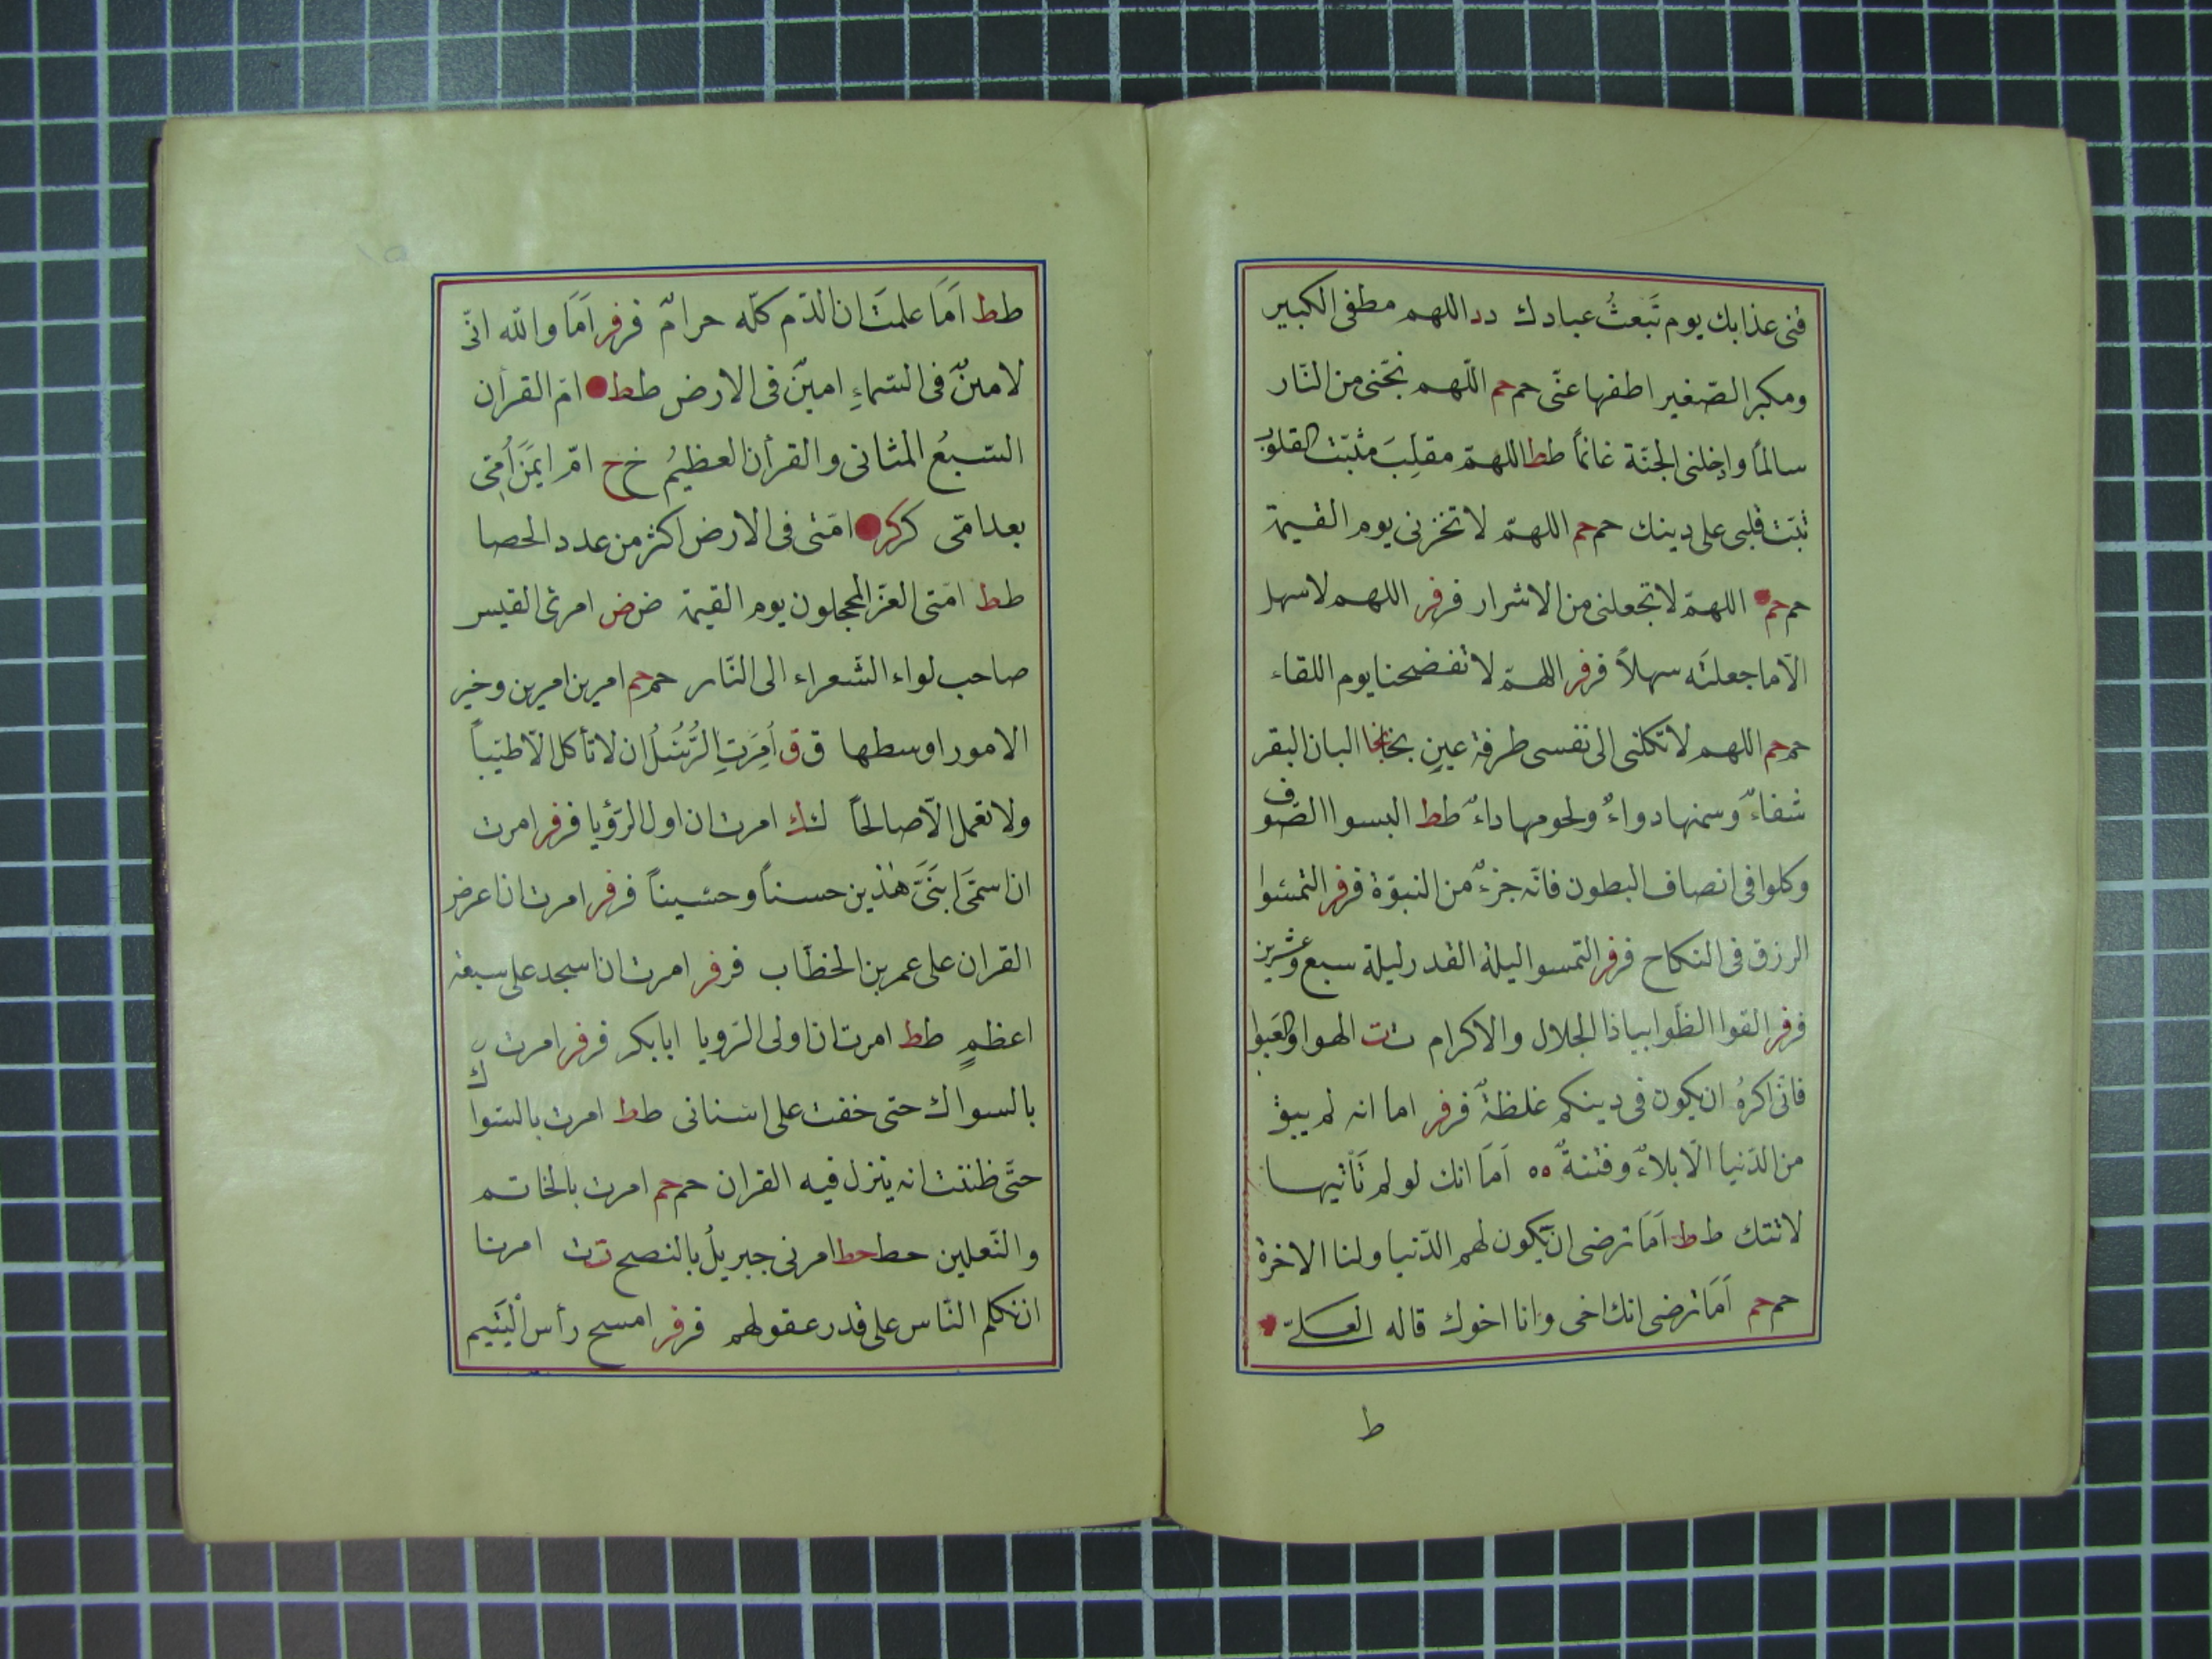 قنى عذابك يوم تَبعثُ عبادك دد اللهم مطفى الكبير
ومكبر الصّغير اطفها عنّى حم حم اللّهم نجّنى من النّار
سالماً وادخلنى الجنّة غانماً ط ط اللهمّ مقلِّبَ مثبّت القلوب
ثبّت قلبى على دينك حم حم اللهمّ لا تخزنى يوم القيمة
حم حم اللهمّ لا تجعلنى من الاشرار فر فر اللهم لا سهل
الّا ما جعلتَه سهلاً فر فر اللهمّ لا تفضحنا يوم اللقاء
حم حم اللهم لا تكلنى الى نفسى طرفة عينٍ نجا نجا البان البقر
شفاءٌ وسمنها دواءٌ ولحومها داءٌ ط ط البسوا الصّوف
وكلوا فى انصاف البطون فانّه جزءٌ من النبوّة فر فر التمسوا
الرزق فى النكاح فر فر التمسوا ليلة القدر ليلة سبع وعشرين
فر فر القوا الظّوا بياذا الجلال والاكرام ت ت الهوا والعبوا
فانّى اكرهُ ان يكون فى دينكم غلظةٌ فر فر اما انه لم يبق
من الدّنيا الّا بلاءٌ وفتنةٌ ٥٥ اَمَا انك لو لم تَأتيها
لاتتك ط ط اَمَا ترضى ان تّكون لهم الدّنيا ولنا الاخرة
حم حم اَمَا ترضى انك اخى وانا اخوك قاله لعلىّ
ط
ط ط اَمَا علمتَ ان الدّم كلّه حرامٌ فر فر اَمَا والله انّى
لامينٌ فى السّماءِ امينٌ فى الارض ط ط امّ القرأن
السّبعُ المثانى والقرأن العظيمُ خ خ امّ ايمَنَ اُمّى
بعد امّى كر كر امّتى فى الارض اكثر من عدد الحصا
ط ط امّتى الغرّ المحجلون يوم القيمة ض ض امرئ القيس
صاحب لواء الشّعراء الى النّار حم حم امرين امرين وخير
الامور اوسطها ق ق اُمِرَتِ الرُّسُلُ ان لا تأكل الّا طيّباً
ولا تعمل الّا صالحاً ك ك امرت ان اول الرّؤيا فر فر امرت
ان اسمّى ابنَىَّ هٰذين حسناً وحسيناً فر فر امرت ان اعرض
القران على عمر بن الخطّاب فر فر امرت ان اسجد على سبعة
اعظمٍ ط ط امرت ان اولى الرّويا ابا بكر فر فر امرت
بالسواك حتى خفت على اسنانى ط ط امرت بالسّواك
حتّى ظننت انه ينزل فيه القران حم حم امرت بالخاتم
والنّعلين حط حط امرنى جبريلُ بالنصح ت ت امرنا
ان نكلم النّاس على قدر عقولهم فر فر امسح رأس اليَتيم